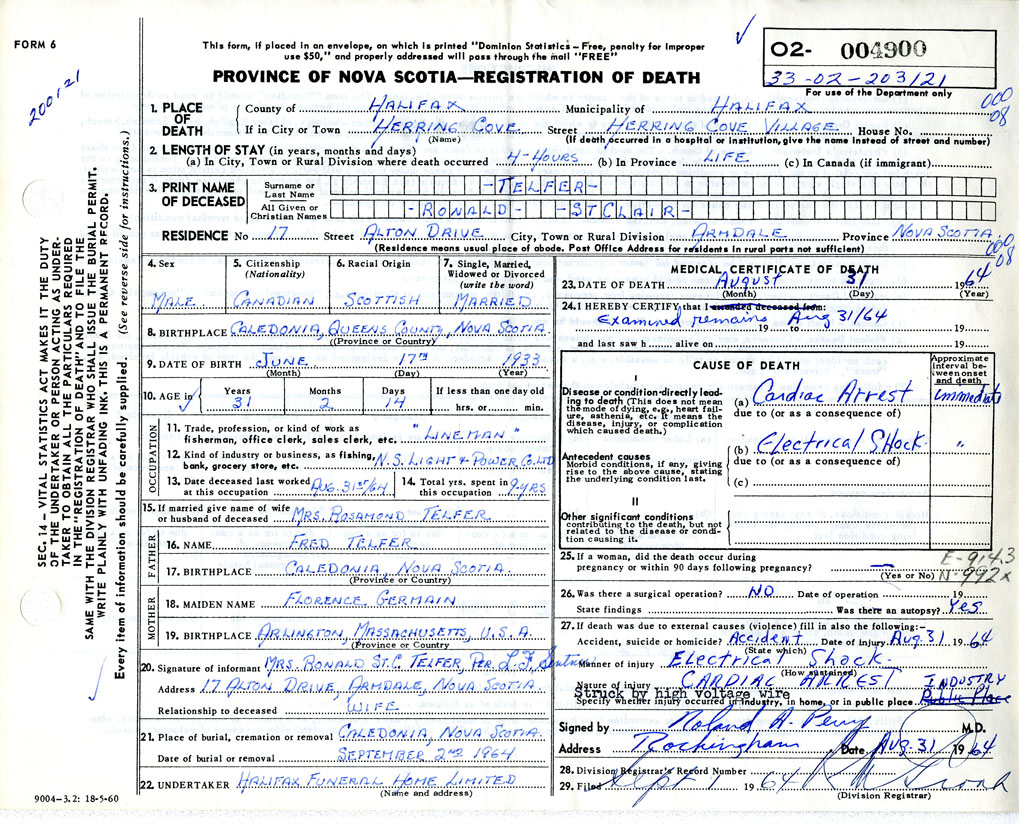 FORM 6
200121
This form, if placed in an envelope, on which is printed "Dominion Statistics - Free, penalty for improper
use $50," and properly addressed will pass through the mail "FREE"
PROVINCE OF NOVA SCOTIA—REGISTRATION OF DEATH
02- 004900
33-02-203121
For use of the Department only
000
08
SEC. 14 — VITAL STATISTICS ACT MAKES IT THE DUTY
OF THE UNDERTAKER OR PERSON ACTING AS UNDER-
TAKER TO OBTAIN ALL THE PARTICULARS REQUIRED
IN THE "REGISTRATION OF DEATH" AND TO FILE THE
SAME WITH THE DIVISION REGISTRAR WHO SHALL ISSUE THE BURIAL PERMIT.
WRITE PLAINLY WITH UNFADING INK. THIS IS A PERMANENT RECORD.
Every item of information should be carefully supplied. (See reverse side for instructions.)
1. PLACE OF DEATH
County of HALIFAX Municipality of HALIFAX
If in City or Town HERRING COVE Street HERRING COVE VILLAGE House No.
(Name) (If death occurred in a hospital or institution, give the name instead of street and number)
2. LENGTH OF STAY (in years, months and days)
(a) In City, Town or Rural Division where death occurred 4-HOURS (b) In Province LIFE (c) In Canada (if immigrant)
3. PRINT NAME OF DECEASED
Surname or Last Name -TELFER-
All Given or Christian Names -RONALD- -STCLAIR-
RESIDENCE No 17 Street ALTON DRIVE City, Town or Rural Division ARMDALE Province NOVA SCOTIA
(Residence means usual place of abode. Post Office Address for residents in rural parts not sufficient)
000
08
4. Sex
MALE
5. Citizenship
(Nationality)
CANADIAN
6. Racial Origin
SCOTTISH
7. Single, Married,
Widowed or Divorced
(write the word)
MARRIED
8. BIRTHPLACE CALEDONIA, QUEENS COUNTY, NOVA SCOTIA
(Province or Country)
9. DATE OF BIRTH JUNE 17TH 1933
(Month) (Day) (Year)
10. AGE in
Years Months Days If less than one day old
31 2 14 hrs. or min.
OCCUPATION
11. Trade, profession, or kind of work as
fisherman, office clerk, sales clerk, etc. "LINEMAN"
12. Kind of industry or business, as fishing,
bank, grocery store, etc. N.S. LIGHT & POWER CO. LTD
13. Date deceased last worked
at this occupation AUG. 31ST/64
14. Total yrs. spent in
this occupation 9-YRS
15. If married give name of wife
or husband of deceased MRS. ROSAMOND TELFER
FATHER
16. NAME FRED TELFER
17. BIRTHPLACE CALEDONIA, NOVA SCOTIA.
(Province or Country)
MOTHER
18. MAIDEN NAME FLORENCE GERMAIN
19. BIRTHPLACE ARLINGTON, MASSACHUSETTS, U.S.A.
(Province or Country)
20. Signature of informant MRS. RONALD ST.C. TELFER, PER L.F.
Address 17 ALTON DRIVE, ARMDALE, NOVA SCOTIA.
Relationship to deceased WIFE
21. Place of burial, cremation or removal CALEDONIA, NOVA SCOTIA.
Date of burial or removal SEPTEMBER 2ND 1964
22. UNDERTAKER HALIFAX FUNERAL HOME LIMITED
(Name and address)
9004-3.2: 18-5-60
MEDICAL CERTIFICATE OF DEATH
23. DATE OF DEATH August 31 1964
(Month) (Day) (Year)
24. I HEREBY CERTIFY that I attended deceased from:
Examined remains 19 to Aug 31/64 19
and last saw h alive on 19
CAUSE OF DEATH
Approximate
interval be-
tween onset
and death
I
Disease or condition directly lead-
ing to death (This does not mean
the mode of dying, e.g., heart fail-
ure, asthenia, etc. It means the
disease, injury, or complication
which caused death.)
(a) Cardiac Arrest immediate
due to (or as a consequence of)
Antecedent causes
Morbid conditions, if any, giving
rise to the above cause, stating
the underlying condition last.
(b) Electrical Shock. "
due to (or as a consequence of)
(c)
II
Other significant conditions
contributing to the death, but not
related to the disease or condi-
tion causing it.
25. If a woman, did the death occur during
pregnancy or within 90 days following pregnancy? —
(Yes or No)
E-914.3
N-992x
26. Was there a surgical operation? NO Date of operation 19
State findings Was there an autopsy? Yes.
27. If death was due to external causes (violence) fill in also the following:-
Accident, suicide or homicide? Accident Date of injury Aug. 31 1964
(State which)
Manner of injury Electrical Shock.
(How sustained)
Nature of injury CARDIAC ARREST INDUSTRY
Struck by high voltage wire
Specify whether injury occurred in industry, in home, or in public place. Public Place
Signed by Roland A. Perry M.D.
Address Rockingham Date Aug. 31 1964
28. Division Registrar's Record Number
29. Filed Sept 1 1964
(Division Registrar)